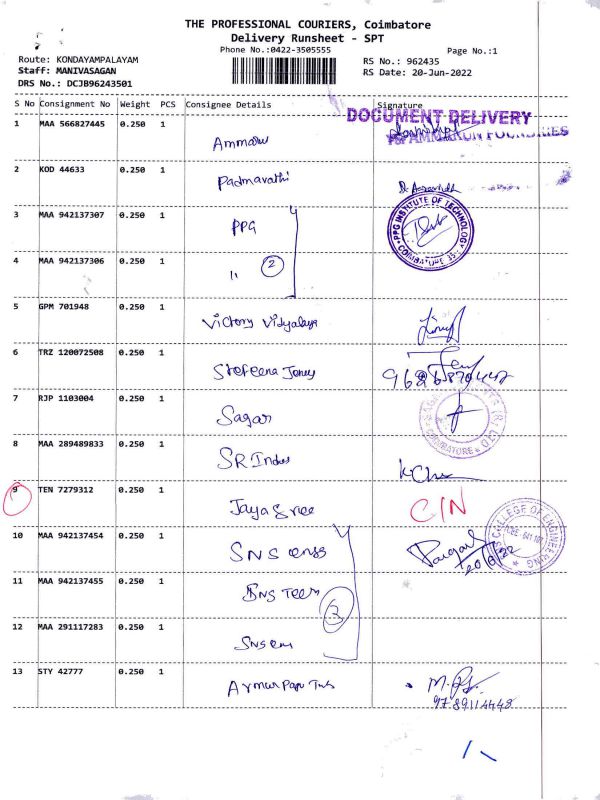 THE PROFESSIONAL COURIERS, Coimbatore
Delivery Runsheet - SPT
Phone No.:0422-3505555
Page No.:1
Route: KONDAYAMPALAYAM
Staff: MANIVASAGAN
DRS No.: DCJB96243501
RS No.: 962435
RS Date: 20-Jun-2022
S No Consignment No Weight PCS Consignee Details Signature
DOCUMENT DELIVERY
1 MAA 566827445 0.250 1
2 KOD 44633 0.250 1 Padmavathi
3 MAA 942137307 0.250 1 PPG
PPG INSTITUTE OF TECHNOLOGY
COIMBATORE 35
4 MAA 942137306 0.250 1 " 2
5 GPM 701948 0.250 1 Victory Vidyalaya
6 TRZ 120072508 0.250 1 Stefeena Jones
7 RJP 1103004 0.250 1 Sagar
COIMBATORE
8 MAA 289489833 0.250 1 SR Indus
9 TEN 7279312 0.250 1 Jaya Sree C/N
10 MAA 942137454 0.250 1 SNS
20/6/22
COLLEGE OF ENGINEERING
11 MAA 942137455 0.250 1 SNS Tech
3
12 MAA 291117283 0.250 1
13 STY 42777 0.250 1
9789114448